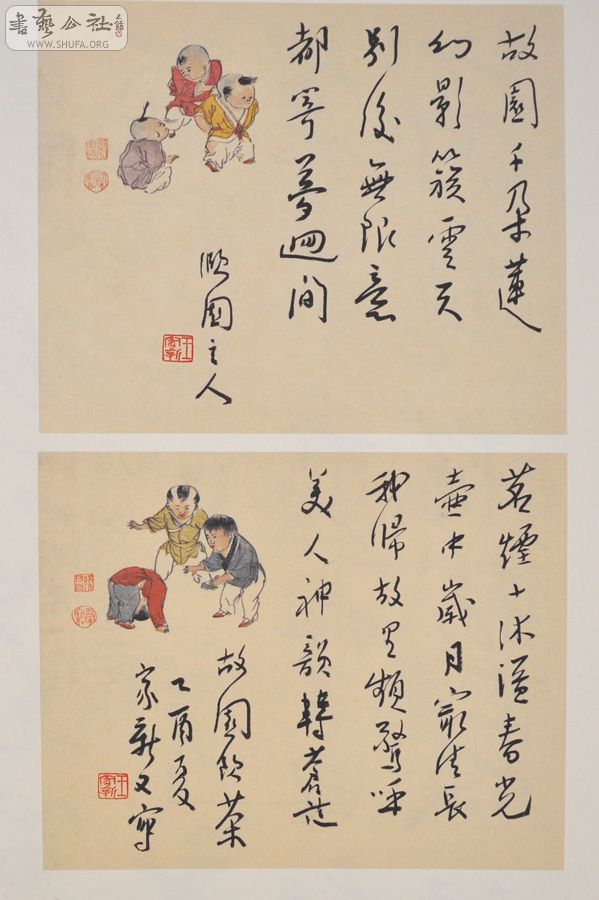 書藝公社
WWW.SHUFA.ORG
故園千朵蓮
幻影簇雲天
別後無限意
都寄夢迴間
園主人
王家新
茗煙十沐溢春光
壺中歲月清長
我歸故里頻驚呼
美人神韻轉蒼茫
故園飲茶
乙酉夏
家新又寫
王家新